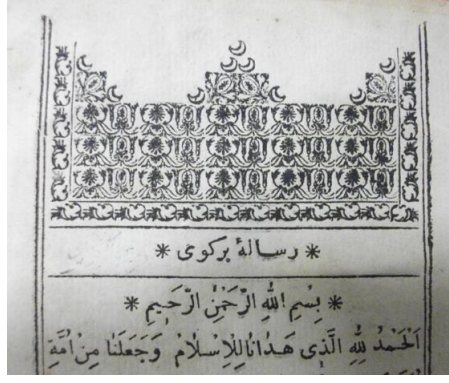 * رسالهٔ بركوى *
* بِسْمِ اللهِ الرَّحْمٰنِ الرَّحِيمِ *
اَلْحَمْدُ لِلّٰهِ الَّذِى هَدٰانَا لِلْاِسْلَامِ وَجَعَلَنَا مِنْ اُمَّةِ